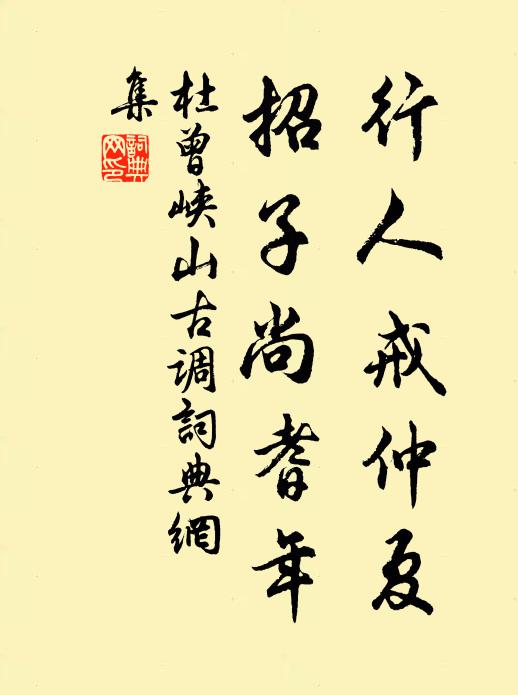 行人戒仲夏
招子尚耆年
杜曾峡山古调詞典網
集
詞典网印